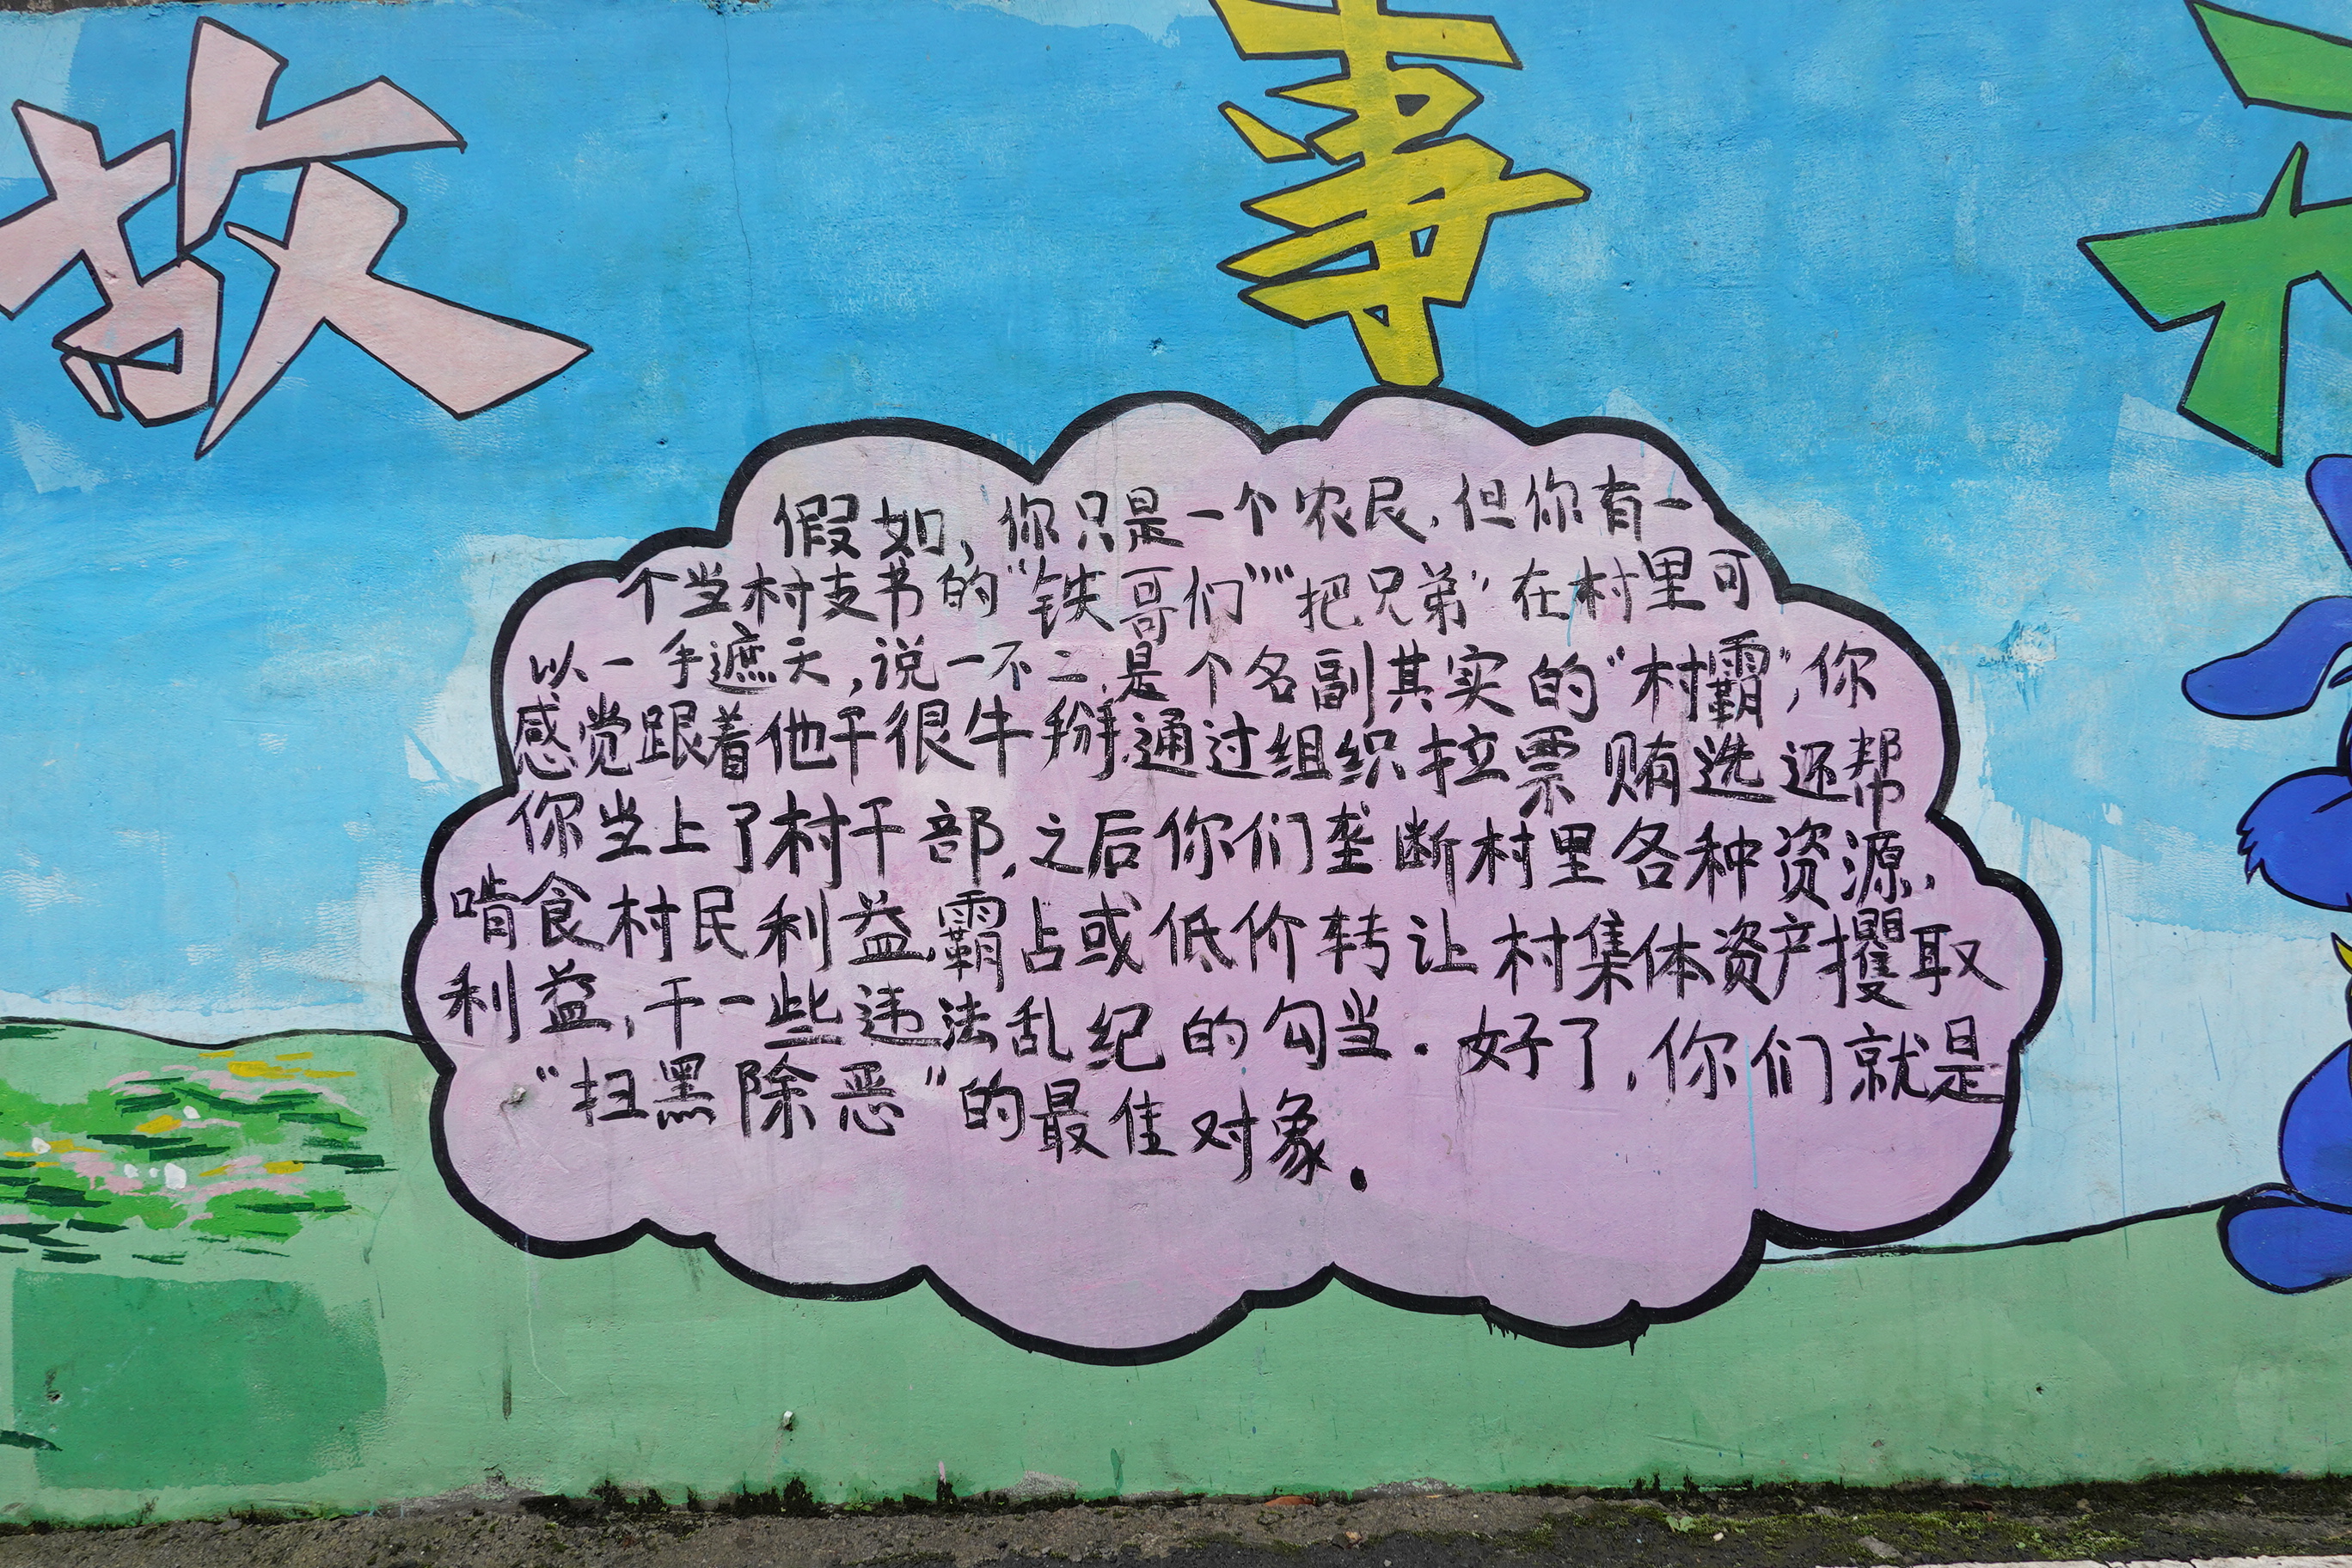 故 事
假如,你只是一个农民,但你有一
个当村支书的“铁哥们”“把兄弟’在村里可
以一手遮天,说一不二,是个名副其实的“村霸”,你
感觉跟着他干很牛掰,通过组织拉票贿选还帮
你当上了村干部,之后你们垄断村里各种资源,
啃食村民利益,霸占或低价转让村集体资产攫取
利益,干一些违法乱纪的勾当.好了,你们就是
“扫黑除恶”的最佳对象.